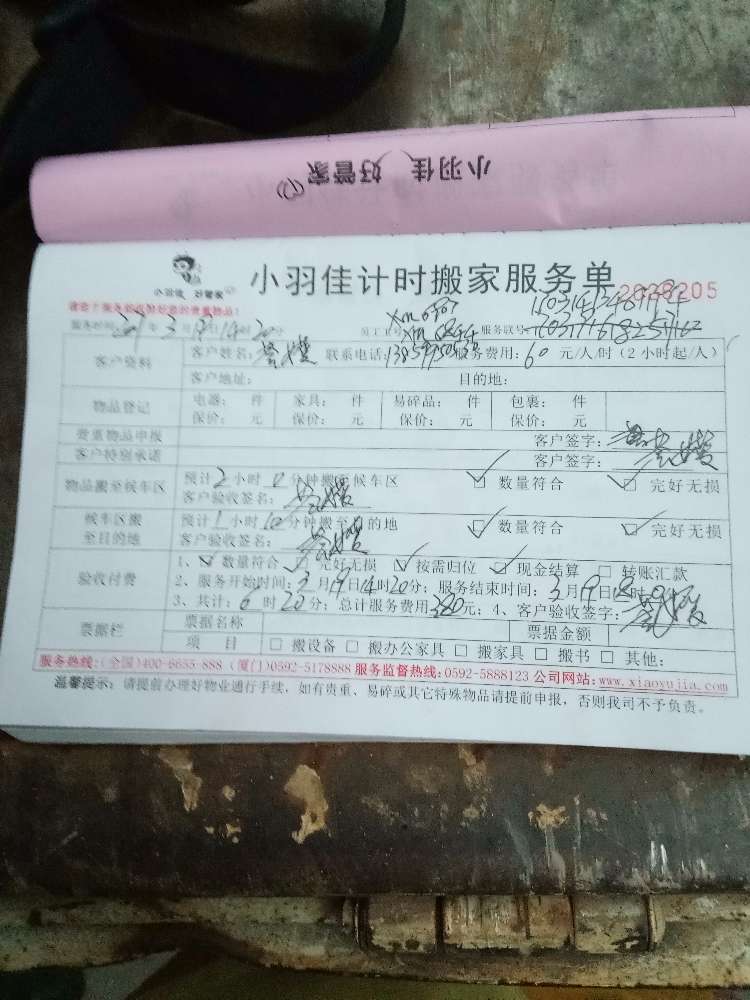 小羽佳 好管家
小羽佳 好管家
小羽佳计时搬家服务单 2038205
服务时间: 年 3 月 19 日 14 时 20 分 员工工号: 服务联号:
客户资料 客户姓名: 联系电话: 服务费用: 60 元/人/时(2小时起/人)
客户地址: 目的地:
物品登记 电器: 件 家具: 件 易碎品: 件 包裹: 件
保价: 元 保价: 元 保价: 元 保价: 元
贵重物品申报 客户签字:
客户特别承诺 客户签字:
物品搬至候车区 预计 2 小时 0 分钟搬至候车区 ☑ 数量符合 ☑ 完好无损
客户验收签名:
候车区搬至目的地 预计 1 小时 10 分钟搬至目的地 ☑ 数量符合 ☑ 完好无损
客户验收签名:
验收付费 1、☑ 数量符合 ☑ 完好无损 ☑ 按需归位 ☑ 现金结算 □ 转账汇款
2、服务开始时间: 3 月 19 日 14 时 20 分; 服务结束时间: 3 月 19 日
3、共计: 6 时 20 分; 总计服务费用 380 元; 4、客户验收签字:
票据栏 票据名称 票据金额
项 目 □ 搬设备 □ 搬办公家具 □ 搬家具 □ 搬书 □ 其他:
服务热线:(全国)400-6655-888 (厦门)0592-5178888 服务监督热线:0592-5888123 公司网站:www.xiaoyujia.com
温馨提示: 请提前办理好物业通行手续, 如有贵重、易碎或其它特殊物品请提前申报, 否则我司不予负责。